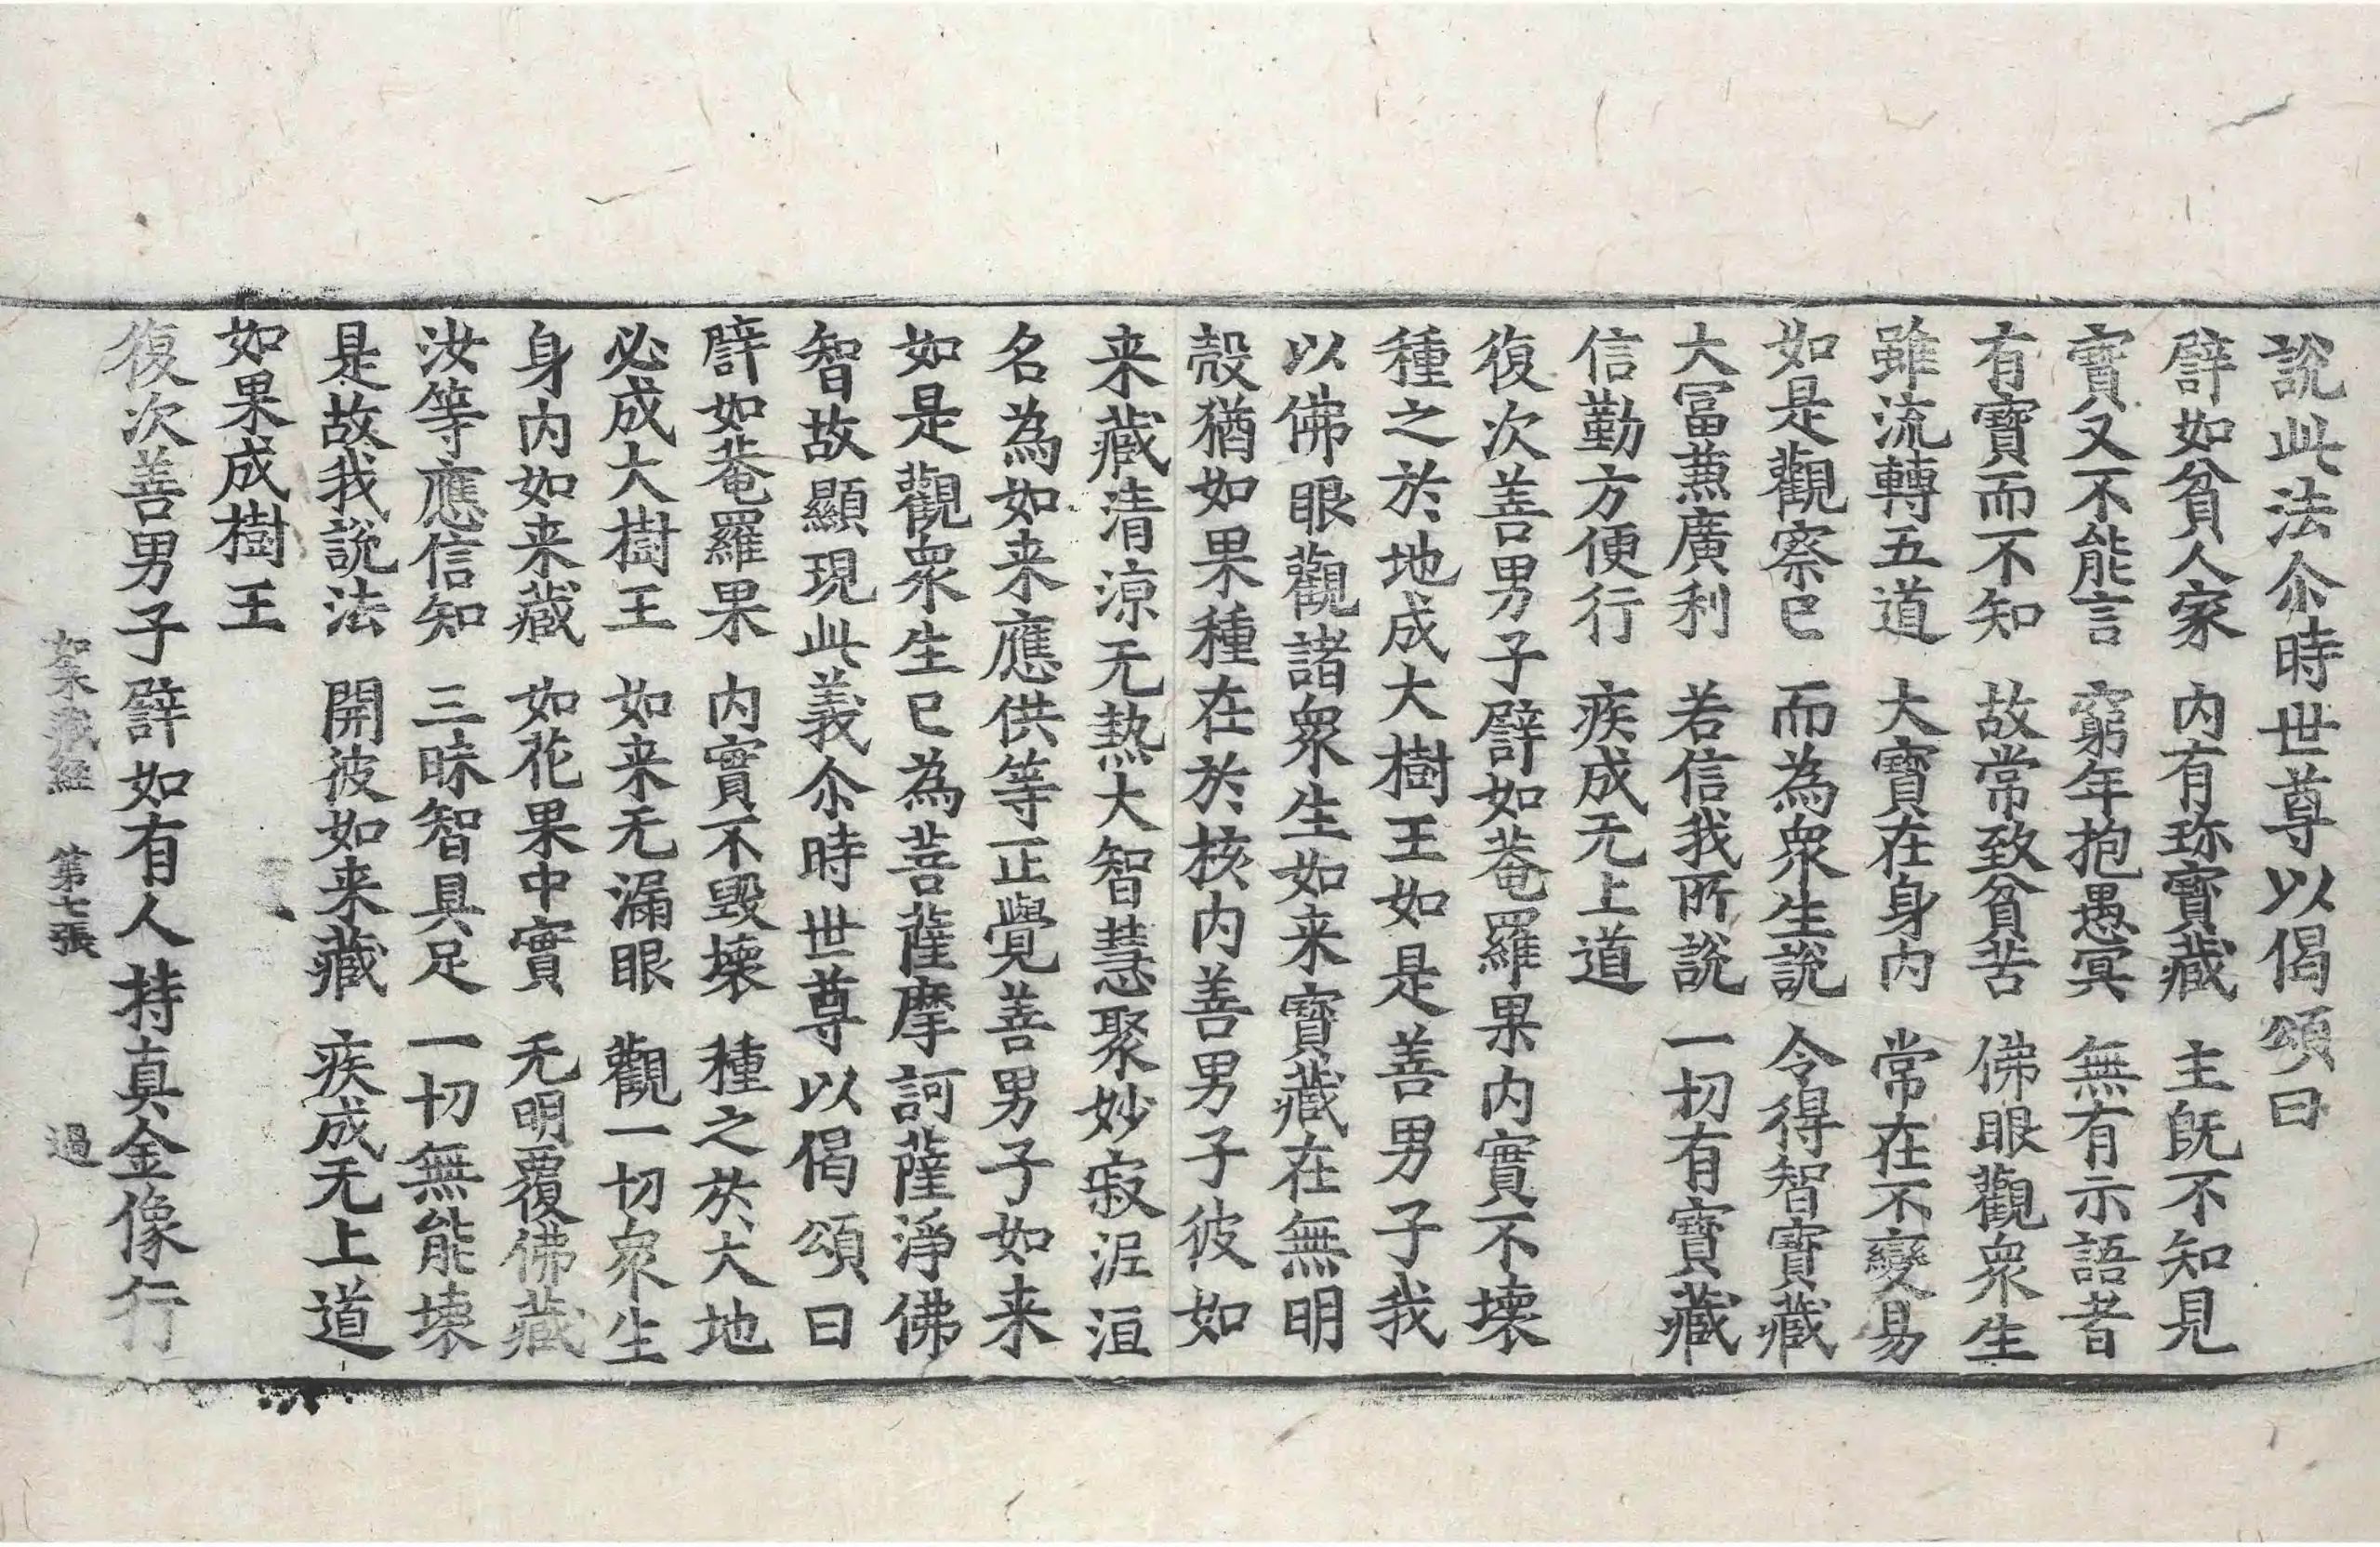 說此法尒時世尊以偈頌曰
譬如貧人家　內有珎寶藏　主旣不知見
寶又不能言　窮年抱愚冥　無有示語者
有寶而不知　故常致貧苦　佛眼觀衆生
雖流轉五道　大寶在身內　常在不變易
如是觀察已　而為衆生說　令得智寶藏
大冨兼廣利　若信我所說　一切有寶藏
信勤方便行　疾成无上道
復次善男子譬如菴羅果內實不壞
種之於地成大樹王如是善男子我
以佛眼觀諸衆生如来寶藏在無明
殼猶如果種在於核內善男子彼如
来藏清涼无熱大智慧聚妙寂泥洹
名為如来應供等正覺善男子如来
如是觀衆生已為菩薩摩訶薩淨佛
智故顯現此義尒時世尊以偈頌曰
譬如菴羅果　內實不毀壞　種之於大地
必成大樹王　如来无漏眼　觀一切衆生
身內如来藏　如花果中實　无明覆佛藏
汝等應信知　三昧智具足　一切無能壞
是故我說法　開彼如来藏　疾成无上道
如果成樹王
復次善男子譬如有人持真金像行
如来藏經　第七張　過